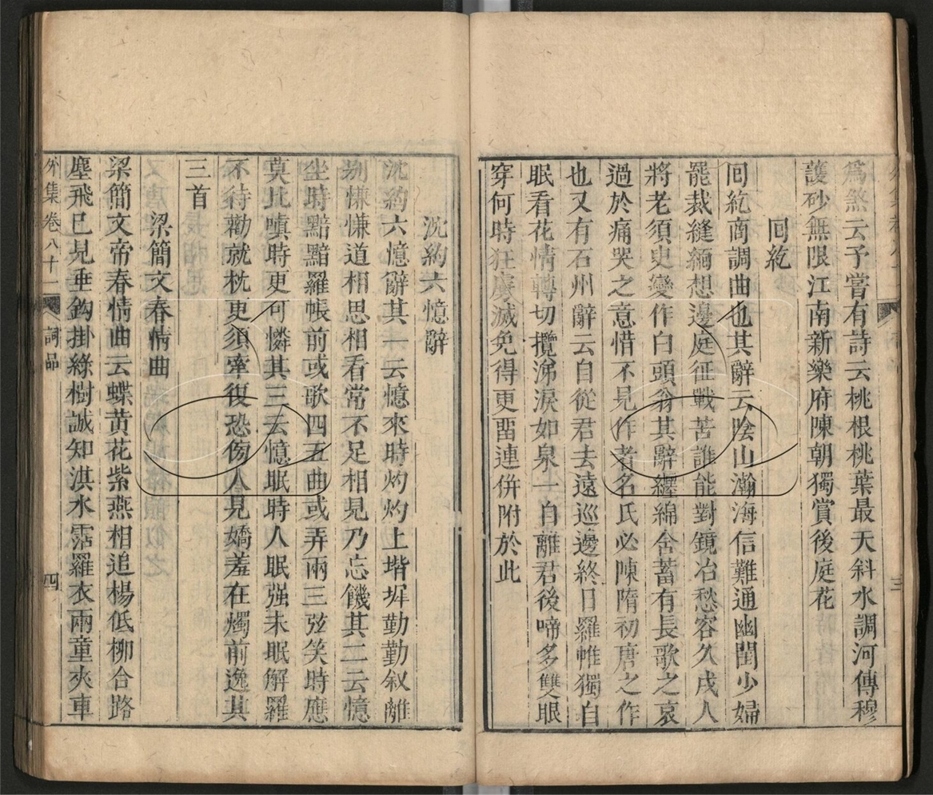 爲煞云予嘗有詩云桃根桃葉最天斜水調河傳穆
護砂無限江南新樂府陳朝獨賞後庭花
回紇
回紇商調曲也其辭云陰山瀚海信難通幽閨少婦
罷裁縫緬想邊庭征戰苦誰能對鏡冶愁容久戍人
將老須臾變作白頭翁其辭纏綿含蓄有長歌之哀
過於痛哭之意惜不見作者名氏必陳隋初唐之作
也又有石州辭云自從君去遠巡邊終日羅帷獨自
眠看花情轉切攬涕淚如泉一自離君後啼多雙眼
穿何時狂虜滅免得更畱連併附於此
三
沈約六憶辭
沈約六憶辭其一云憶來時灼灼上堦墀勤勤叙離
別慊慊道相思相看常不足相見乃忘饑其二云憶
坐時黯黯羅帳前或歌四五曲或弄兩三弦笑時應
莫比嗔時更可憐其三云憶眠時人眠强未眠解羅
不待勸就枕更須牽復恐傍人見嬌羞在燭前逸其
三首
梁簡文春情曲
梁簡文帝春情曲云蝶黃花紫燕相追楊低柳合路
塵飛已見垂鈎掛綠樹誠知淇水霑羅衣兩童夾車
外集卷八十一 詞品 四